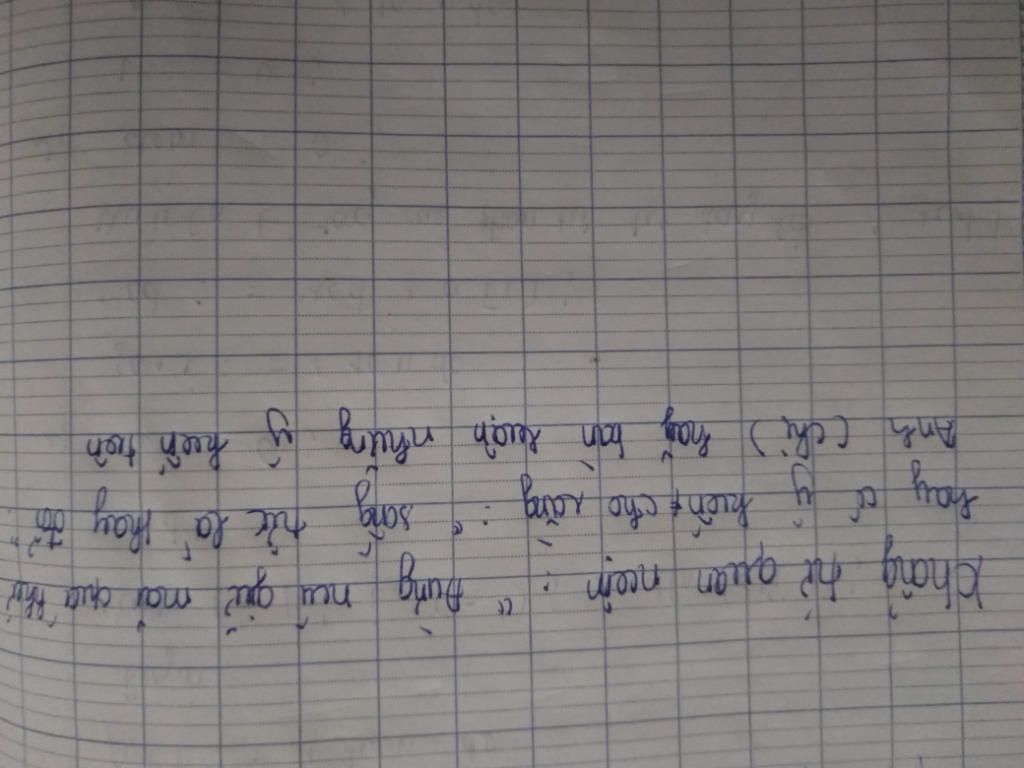 Khổng tử quan niệm : " Đừng níu giữ mãi quá khứ"
hay có ý kiến cho rằng : " sống tức là thay đổi"
Anh (chị) hãy bàn luận những ý kiến trên